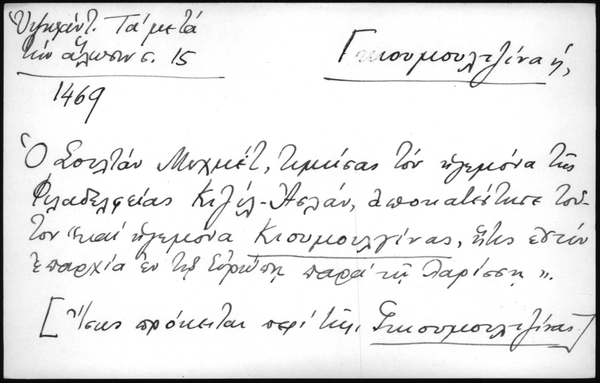 Ὑψηλάντ. Τὰ μετὰ
τὴν ἅλωσιν σ. 15
Γκιουμουλτζίνα ἡ,
1469
Ὁ Σουλτὰν Μεχμέτ, τιμήσας τὸν ἡγεμόνα τῆς
Φιλαδελφείας Κιζὶλ-Ἀσλάν, ἀποκατέστησε τοῦ-
τον "καὶ ἡγεμόνα Κιουμουλγίνας, ἥτις ἐστὶν
ἐπαρχία ἐν τῇ Εὐρώπῃ παρὰ τῇ Λαρίσσῃ".
[Ἴσως πρόκειται περὶ τῆς Γκιουμουλτζίνας]